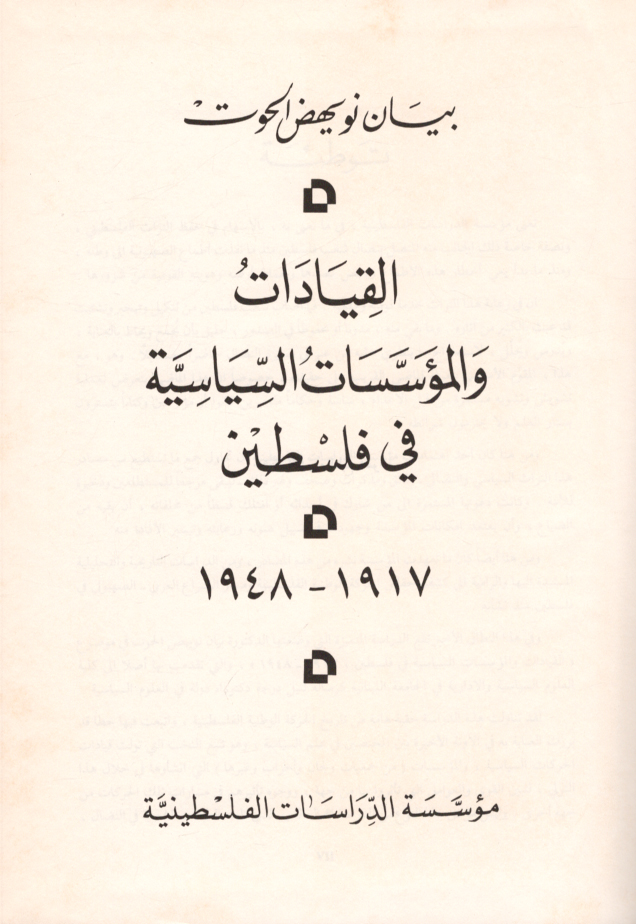 بيَان نويهض الحوت
القِيَادَاتُ
وَالمؤَسَّسَاتُ السِّيَاسِيَّة
في فلسْطيْن
١٩١٧ - ١٩٤٨
مؤسَّسَة الدِّرَاسَات الفلسْطينيَّة